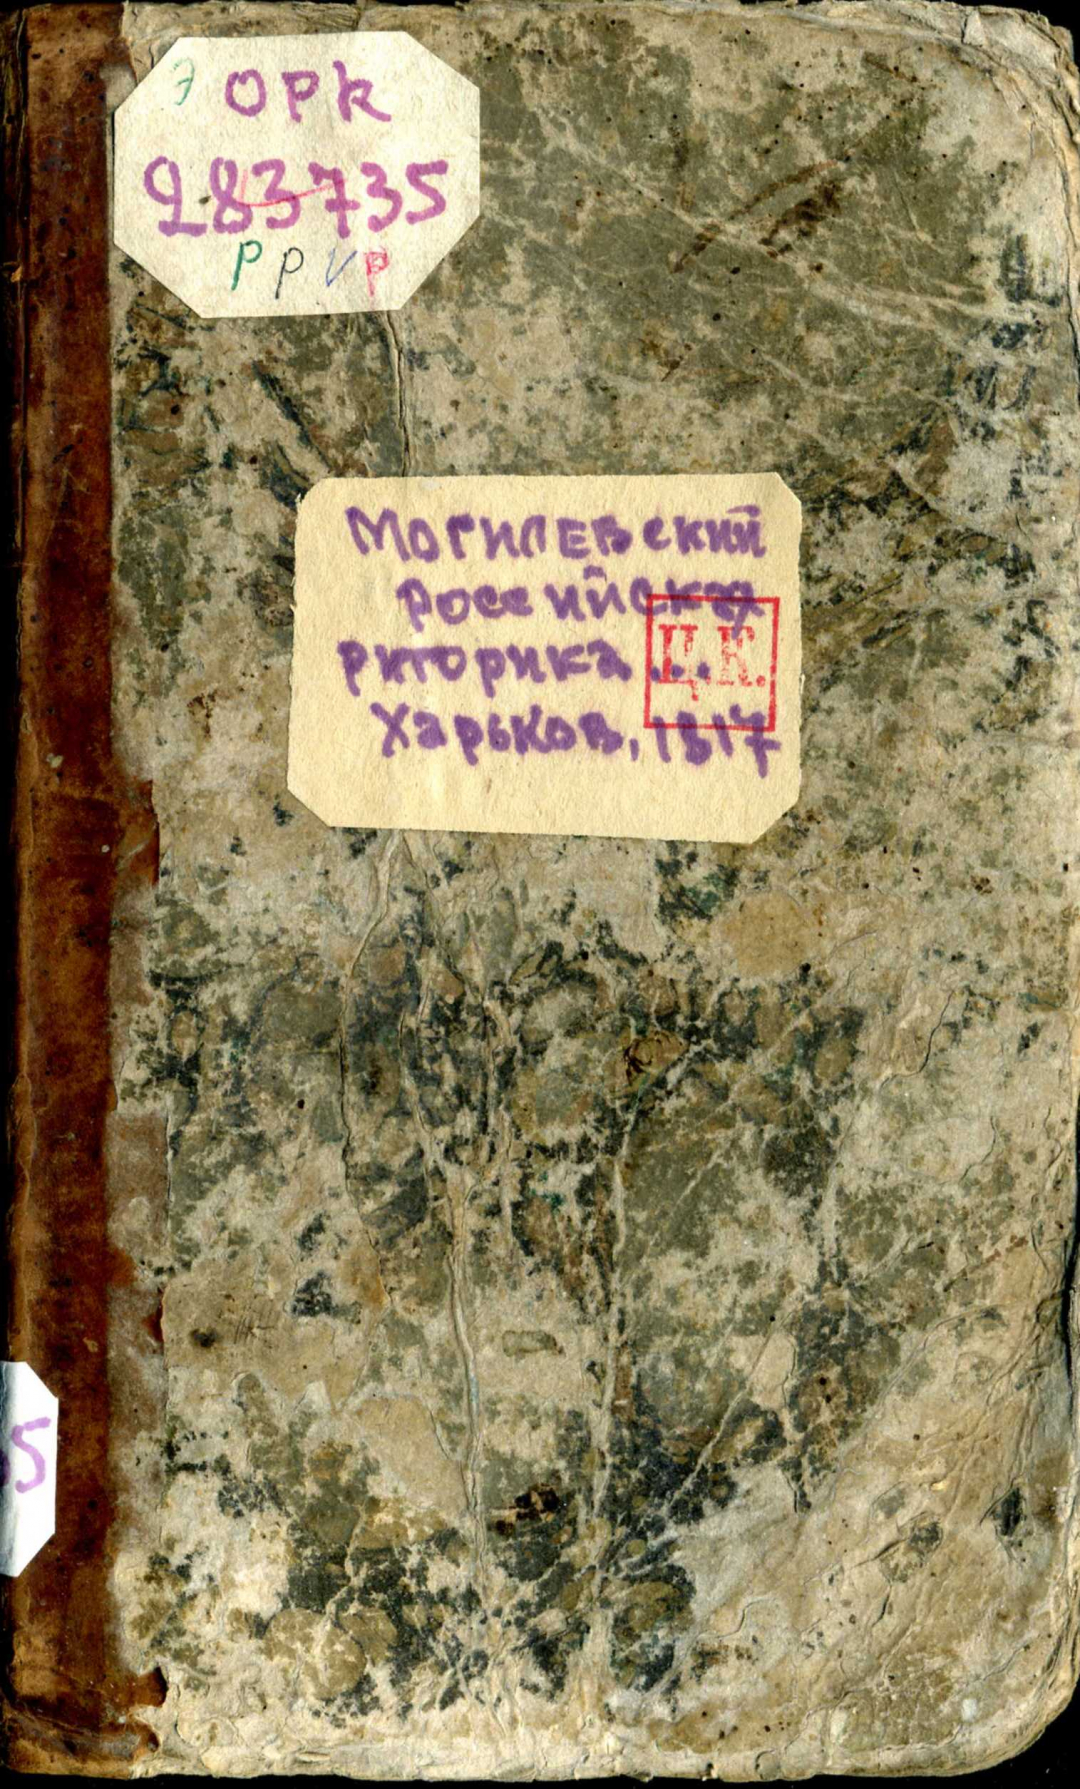 Э ОРК
283735
Р Р V Р
Могилевский
Российская
риторика ...
Харьков, 1817
Ц.К.
5